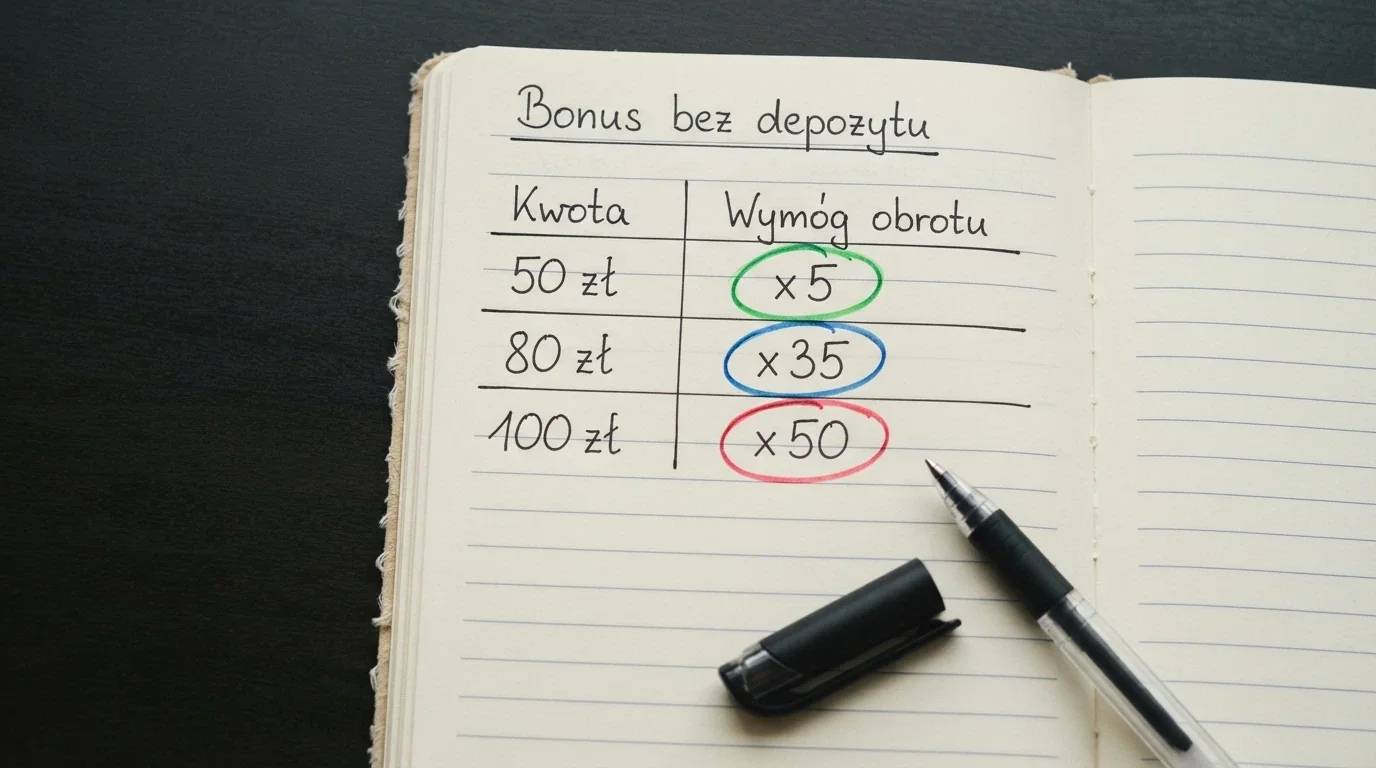 Bonus bez depozytu
Kwota Wymóg obrotu
50 zł x5
80 zł x35
100 zł x50